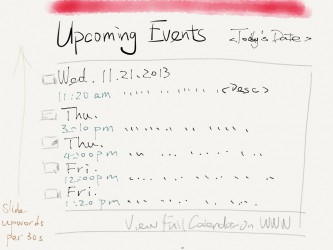 Upcoming Events <Today's Date>
Wed. 11.21.2013
11:20 am <Desc>
Thu.
3:10 pm
Thu.
4:00pm
Fri.
12:00pm
Fri.
1:20 pm
View Full Calendar on WWW
Slide
upwards
per 30s